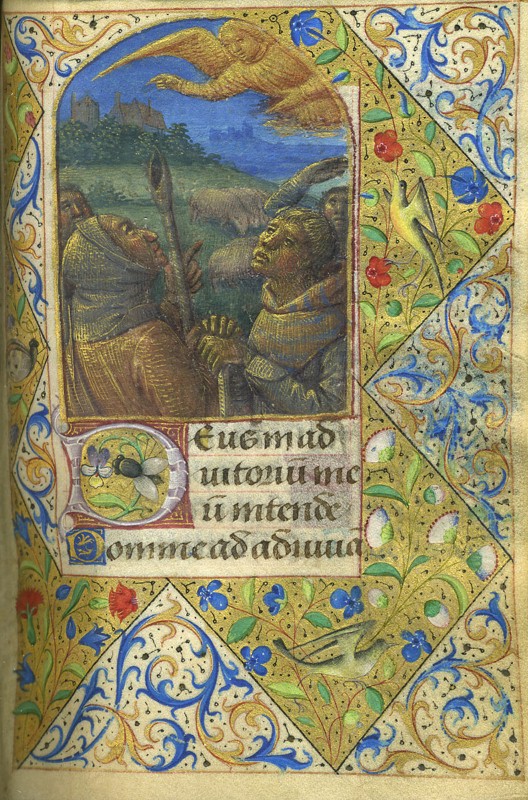 Deus in ad
iutoriū me
ū intende
Domine ad adiuuā